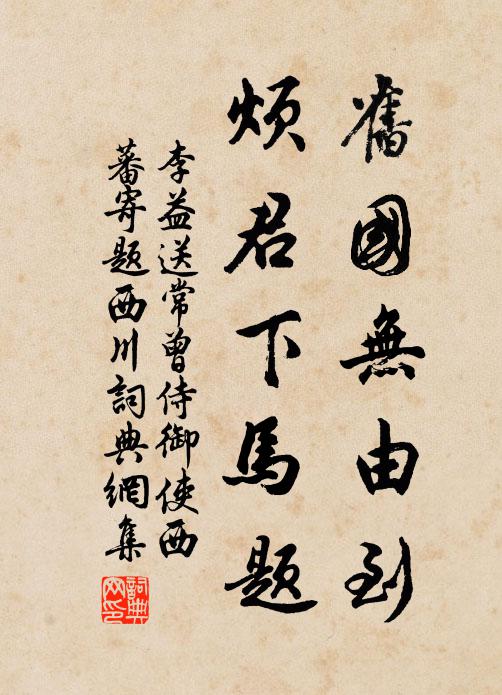 舊國無由到
煩君下馬題
李益送常曾侍御使西
蕃寄題西川詞典網集
詞典網印